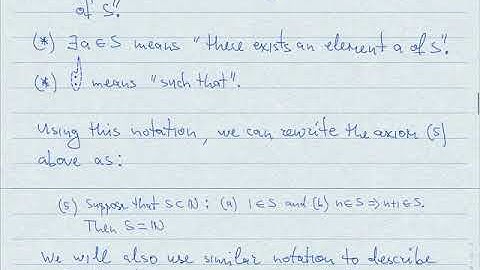 of S".
(*) ∃a∈S means "there exists an element a of S".
(*) : means "such that".
Using this notation, we can rewrite the axiom (5)
above as:
(5) Suppose that S⊂ℕ : (a) 1∈S and (b) n∈S ⇒ n+1∈S.
Then S=ℕ
We will also use similar notation to describe